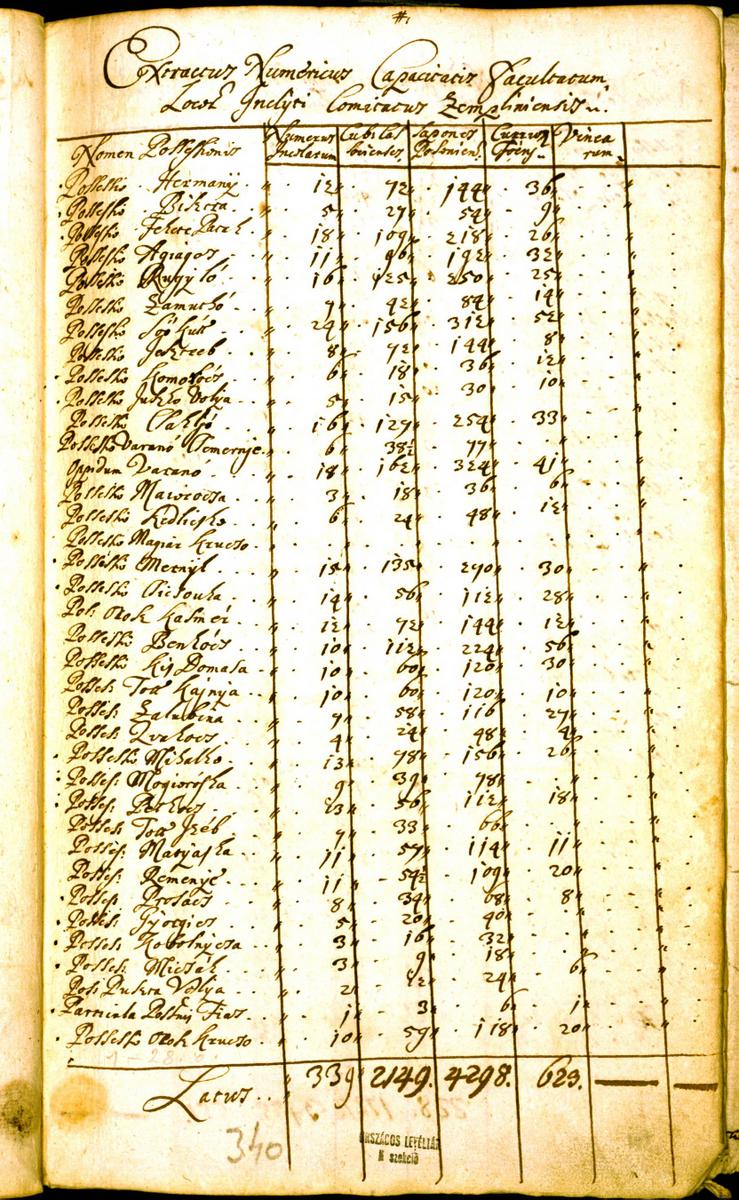 #1
Extractus Numericus Capacitatis Facultatum
Inclyti Comitatus Zempliniensis
Nomen Possessionis Numerus Incolarum Cubilas Sapones Polonien Currus Vinea rum
Possessio Hermanÿ 12 72 144 36
Possessio Biszta 5 27 54 9
Possessio Fekete Patak 18 109 218 26
Possessio Agiagos 11 96 192 32
Possessio Rugyló 16 125 250 25
Possessio Zamuthó 7 42 84 14
Possessio Sós kútt 24 156 312 52
Possessio Jesztreb 8 72 144 8
Possessio Komoróčs 6 18 36 12
Possessio Juszko Volya 5 15 30 10
Possessio Csakljó 16 127 254 33
Possessio Varanó Csemernje 6 38½ 77
Oppidum Varanó 18 162 324 41
Possessio 3 18 36 6
Possessio Kedlicske 6 24 48 12
Possessio Magiar Krucso
Possessio Mernyk 15 135 270 30
Possessio Csicsouka 14 56 112 28
Pos: Orok Kasmér 12 72 144 12
Possessio Benkócs 10 112 224 56
Possessio Kis Domasa 10 60 120 30
Posses: Tott Kajnya 10 60 120 10
Posses: Zalubina 7 58 116 27
Posses: 4 24 48 4
Possessio Mihalko 13 78 156 26
Posses: Mogioroska 9 39 78
Posses: 23 56 112 18
Posses: Tott Jzéb 7 33 66
Posses: Matyaska 11 57 114 11
Posses: Remenye 11 54½ 109 20
Posses: Prosács 8 34 68 8
Posses: Gyorgies 5 20 40
Posses: Kobolnycza 3 16 32
Posses: Micsák 3 9 18 6
Pos: Puszta Volya 2 12 24
Particula Possnis 1 3 6 1
Possessio Orok Krucso 10 59 118 20
1-28
Latus 339 2149. 4298. 623.
340
ORSZÁGOS LEVÉLTÁR
II szekció